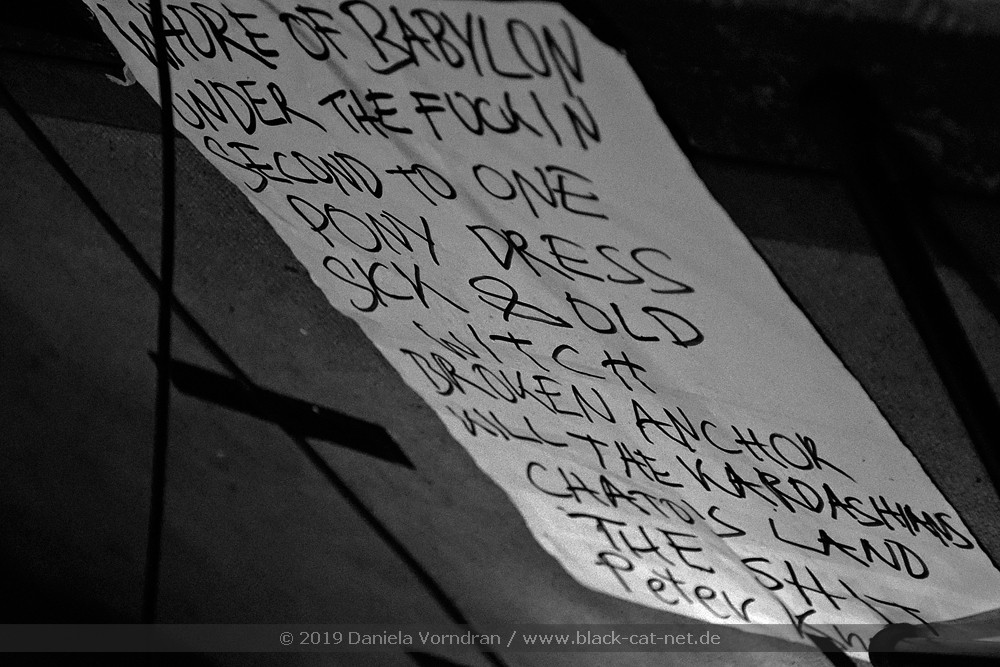 WHORE OF BABYLON
UNDER THE FUCKIN
SECOND TO ONE
PONY DRESS
SICK & OLD
WITCH
BROKEN ANCHOR
KILL THE KARDASHIANS
CHATOS LAND
THE SHIT
Peter
© 2019 Daniela Vorndran / www.black-cat-net.de